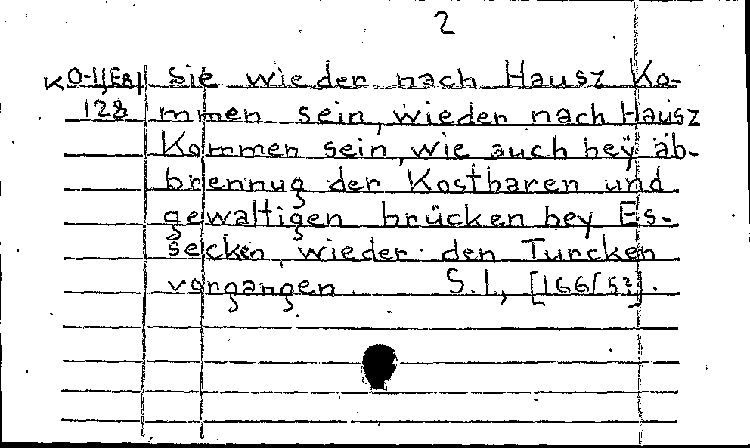 2
KO-1(Es) Sie wieder nach Hausz Ko-
128 mmen sein, wieder nach Hausz
Kommen sein, wie auch beÿ äb-
brennug der Kostbaren und
gewaltigen brücken bey Es-
secken wieder den Turcken
vorgangen. S.1, [166/53].